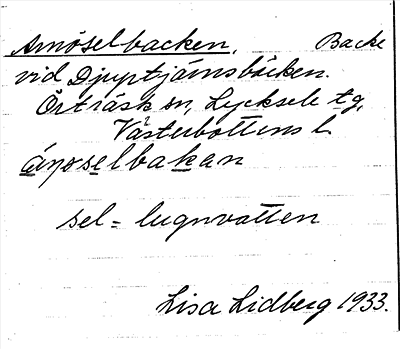 Amöselbacken, Backe
vid Djuptjärnsbäcken.
Örträsk sn, Lycksele tg,
Västerbottens l.
sel = lugnvatten
Lisa Lidberg 1933.